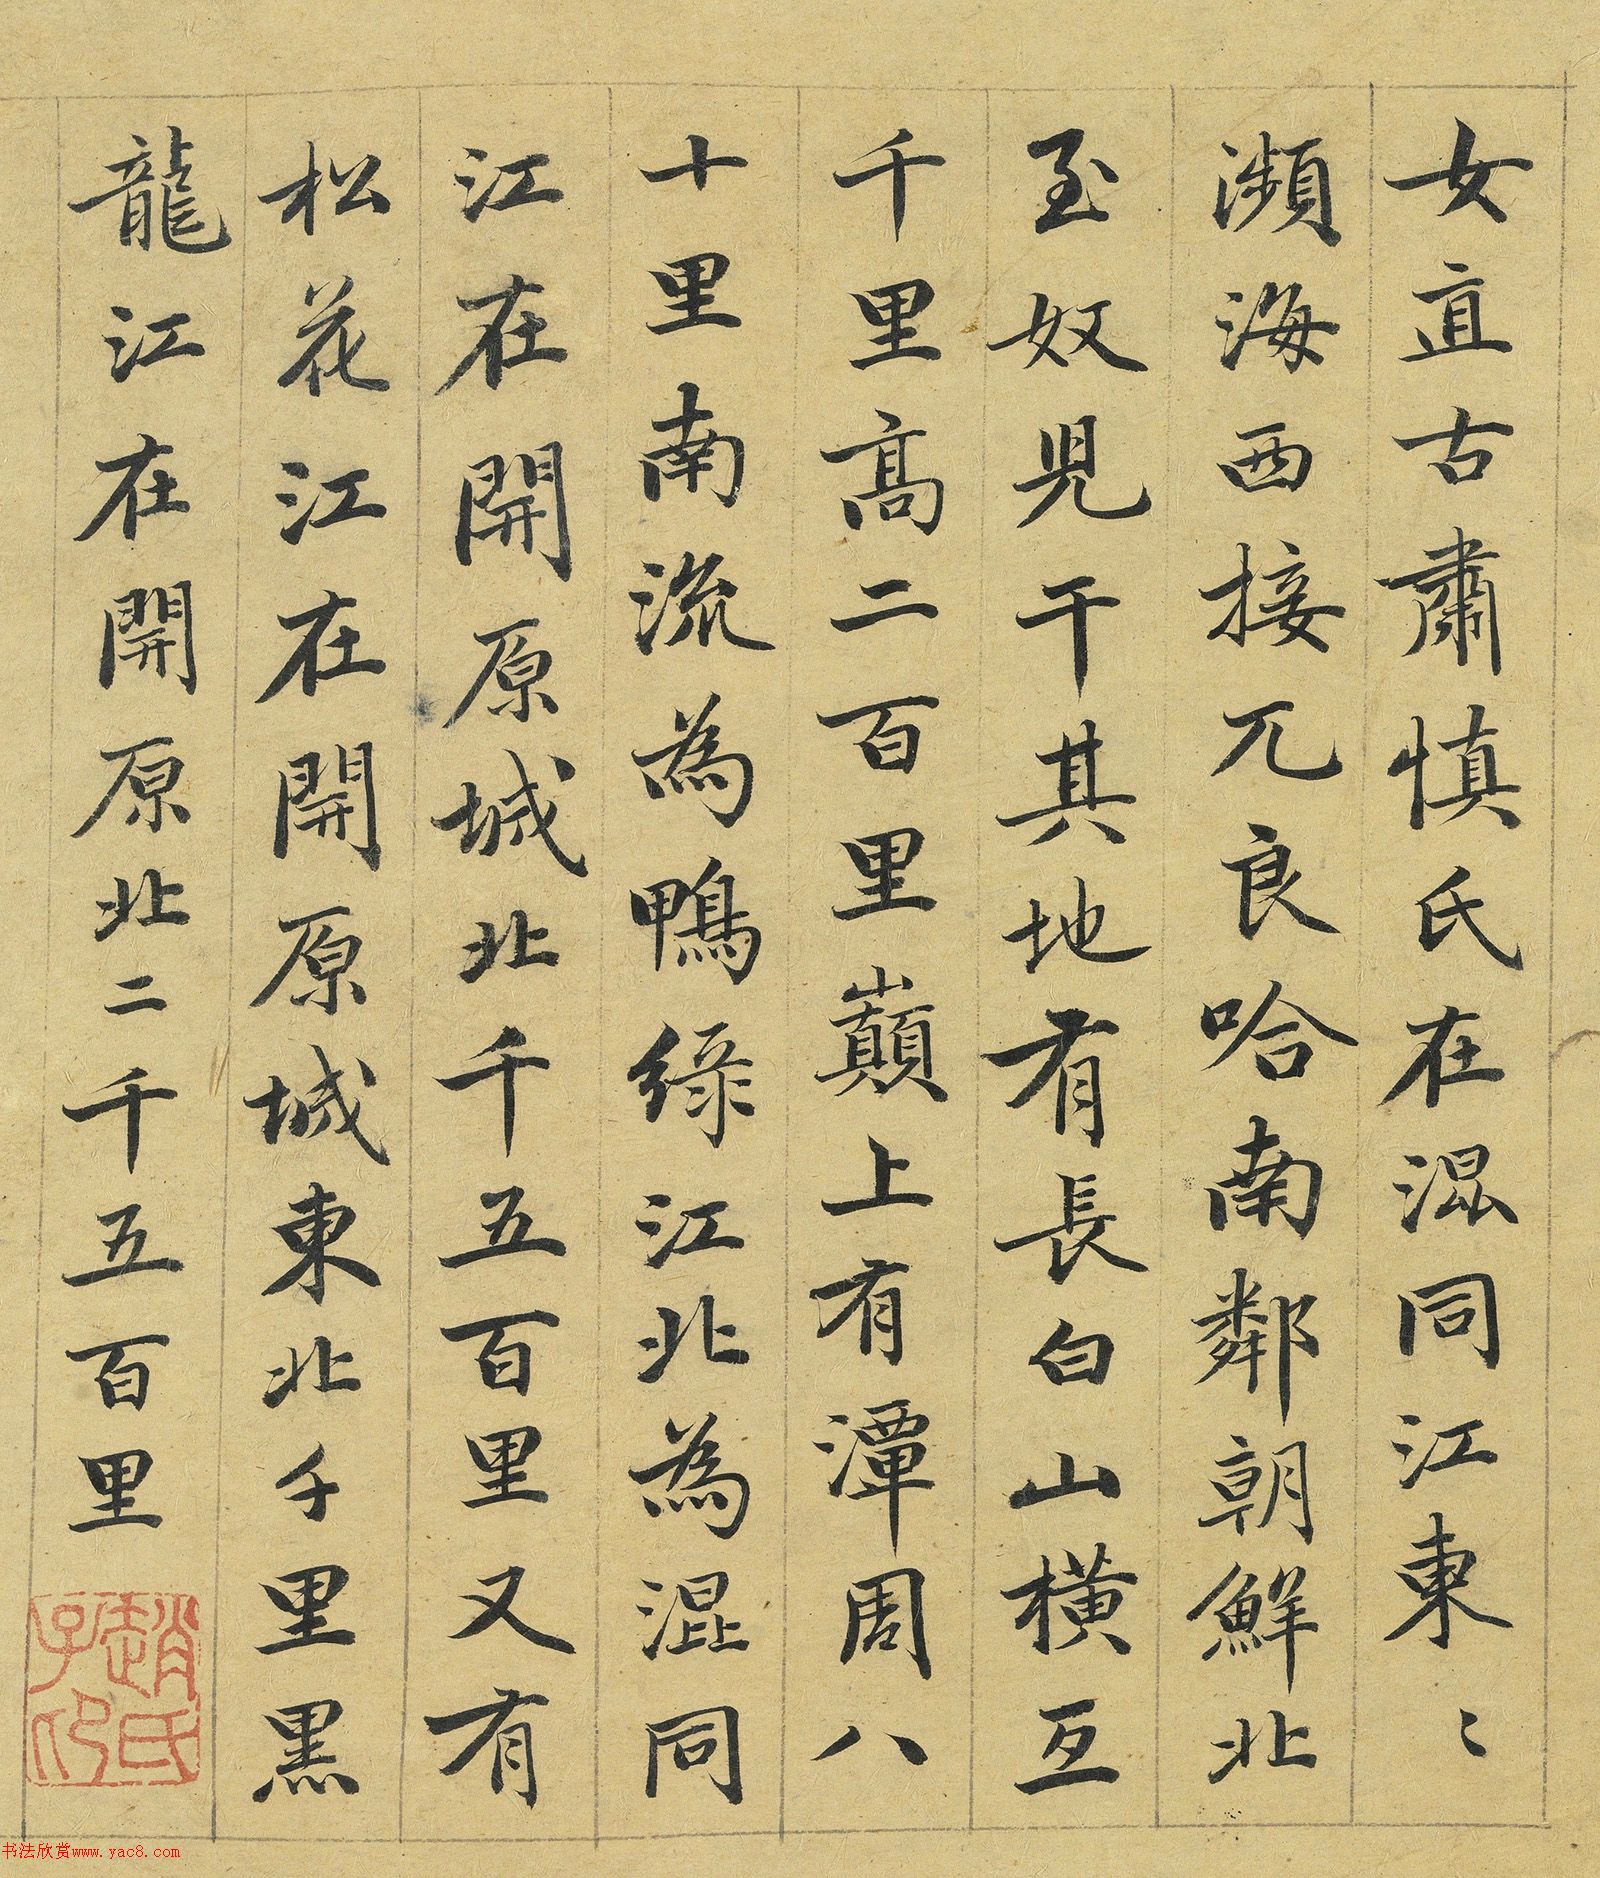 女直古肅慎氏在混同江東〻
瀕海西接兀良哈南鄰朝鮮北
至奴児干其地有長白山橫亙
千里高二百里巔上有潭周八
十里南流為鴨綠江北為混同
江在開原城北千五百里又有
松花江在開原城東北千里黑
龍江在開原北二千五百里
趙氏子印
书法欣赏www.yac8.com